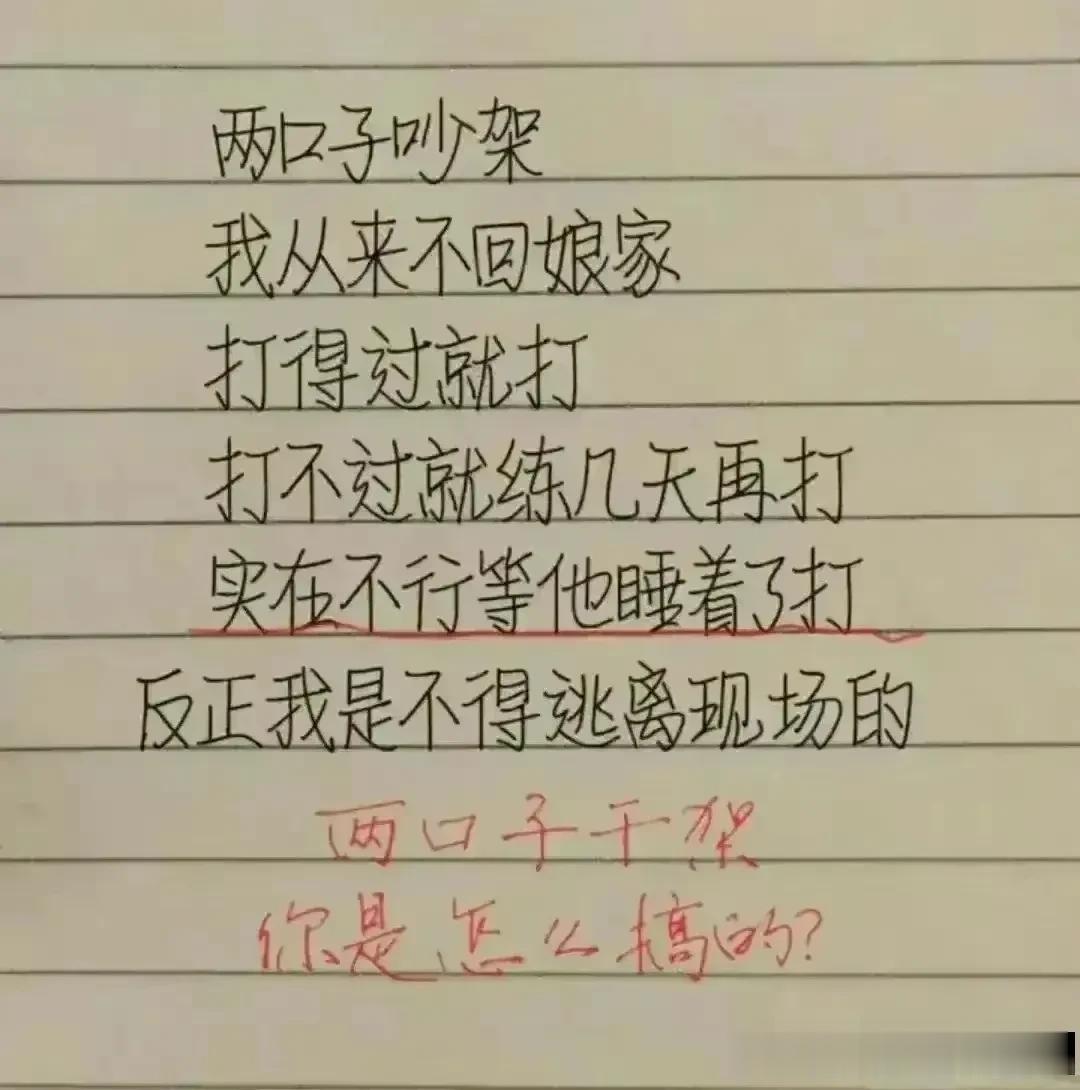 两口子吵架
我从来不回娘家
打得过就打
打不过就练几天再打
实在不行等他睡着了打
反正我是不得逃离现场的
两口子干架
你是怎么搞的?